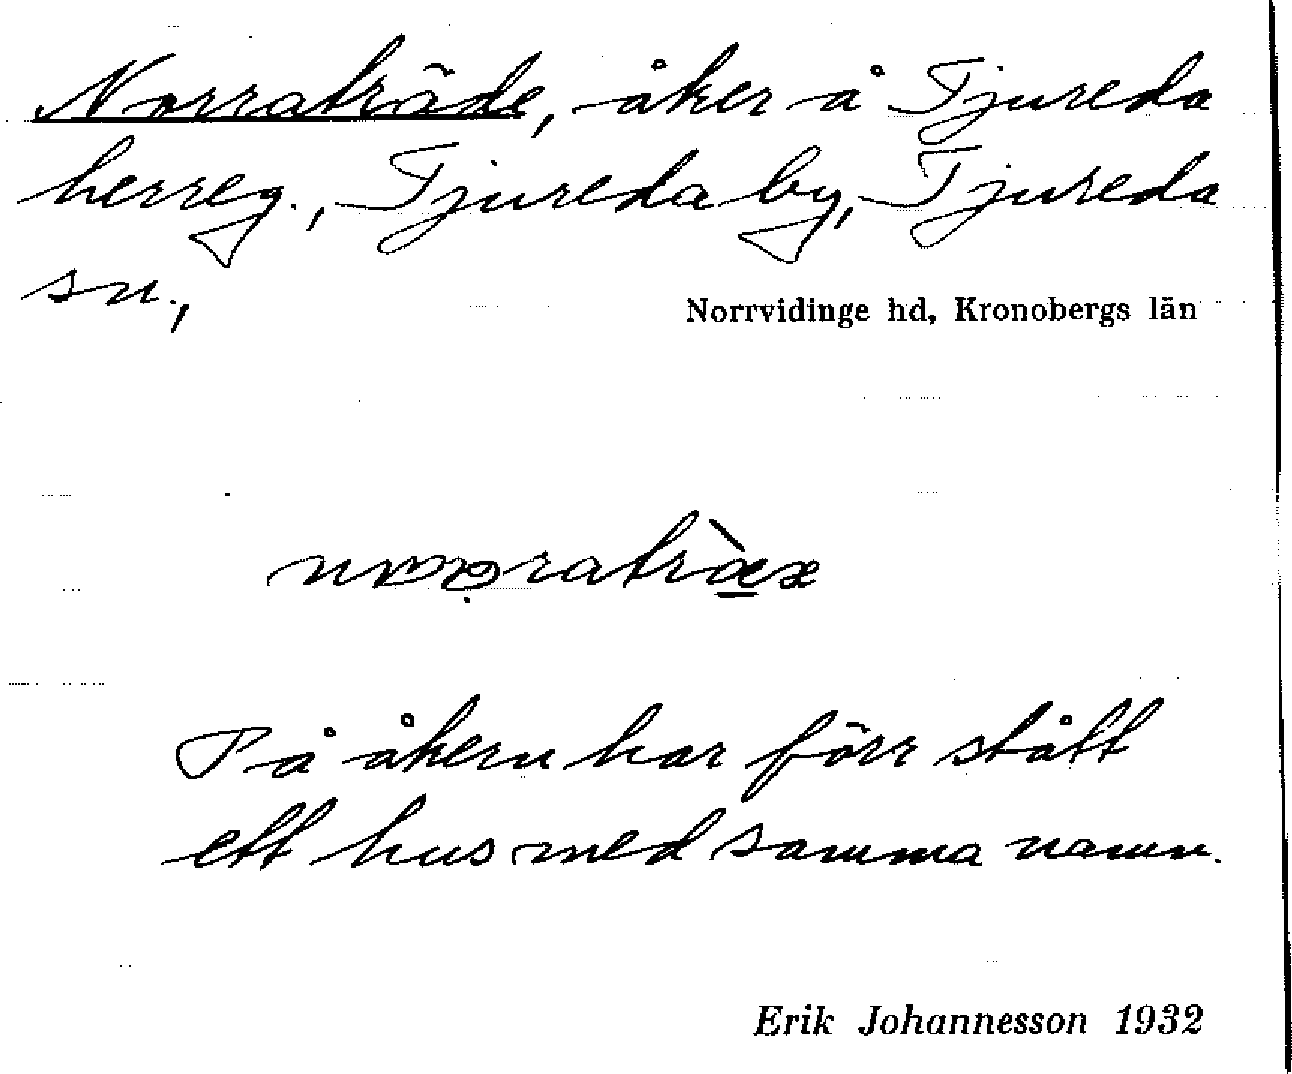 Norraträde, åker å Tjureda
herreg., Tjureda by, Tjureda
sn.,
Norrvidinge hd, Kronobergs län
På åkern har förr stått
ett hus med samma namn.
Erik Johannesson 1932